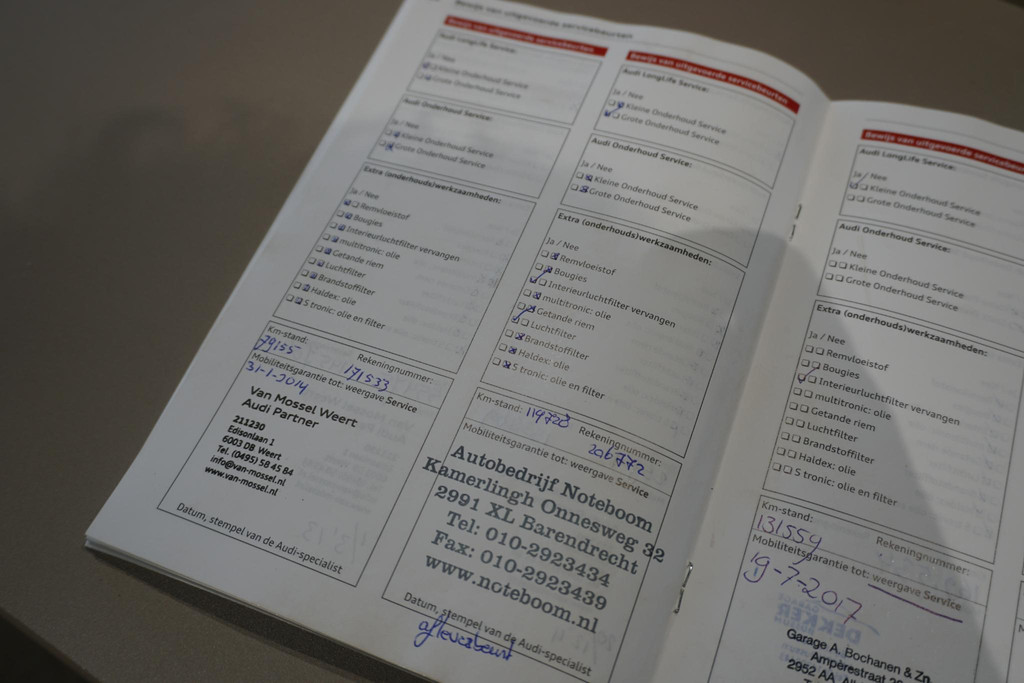 Bewijs van uitgevoerde servicebeurten
Bewijs van uitgevoerde servicebeurten
Audi LongLife Service:
Ja / Nee
Kleine Onderhoud Service
Grote Onderhoud Service
Audi Onderhoud Service:
Ja / Nee
Kleine Onderhoud Service
Grote Onderhoud Service
Extra (onderhouds)werkzaamheden:
Ja / Nee
Remvloeistof
Bougies
Interieurluchtfilter vervangen
multitronic: olie
Getande riem
Luchtfilter
Brandstoffilter
Haldex: olie
S tronic: olie en filter
Km-stand: Rekeningnummer:
79155 171533
Mobiliteitsgarantie tot: weergave Service
31-1-2014
Van Mossel Weert
Audi Partner
211230
Edisonlaan 1
6003 DB Weert
Tel. (0495) 58 45 84
info@van-mossel.nl
www.van-mossel.nl
Datum, stempel van de Audi-specialist
Bewijs van uitgevoerde servicebeurten
Audi LongLife Service:
Ja / Nee
Kleine Onderhoud Service
Grote Onderhoud Service
Audi Onderhoud Service:
Ja / Nee
Kleine Onderhoud Service
Grote Onderhoud Service
Extra (onderhouds)werkzaamheden:
Ja / Nee
Remvloeistof
Bougies
Interieurluchtfilter vervangen
multitronic: olie
Getande riem
Luchtfilter
Brandstoffilter
Haldex: olie
S tronic: olie en filter
Km-stand: 119728 Rekeningnummer:
206772
Mobiliteitsgarantie tot: weergave Service
Autobedrijf Noteboom
Kamerlingh Onnesweg 32
2991 XL Barendrecht
Tel: 010-2923434
Fax: 010-2923439
www.noteboom.nl
Datum, stempel van de Audi-specialist
afleverbeurt
Bewijs van uitgevoerde servicebeurten
Audi LongLife Service:
Ja / Nee
Kleine Onderhoud Service
Grote Onderhoud Service
Audi Onderhoud Service:
Ja / Nee
Kleine Onderhoud Service
Grote Onderhoud Service
Extra (onderhouds)werkzaamheden:
Ja / Nee
Remvloeistof
Bougies
Interieurluchtfilter vervangen
multitronic: olie
Getande riem
Luchtfilter
Brandstoffilter
Haldex: olie
S tronic: olie en filter
Km-stand: Rekeningnummer:
131559
Mobiliteitsgarantie tot: weergave Service
19-7-2017
DEKKER
Garage A. Bochanen & Zn.
Ampèrestraat
2952 AA